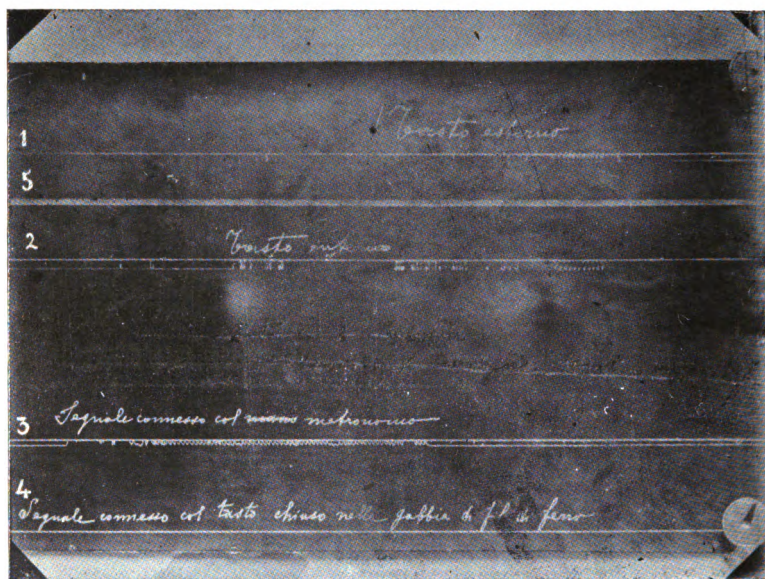 1
Tasto esterno
5
2
Tasto
3 Segnale connesso col metronomo
4
Segnale connesso col tasto chiuso nella gabbia di fº di ferro